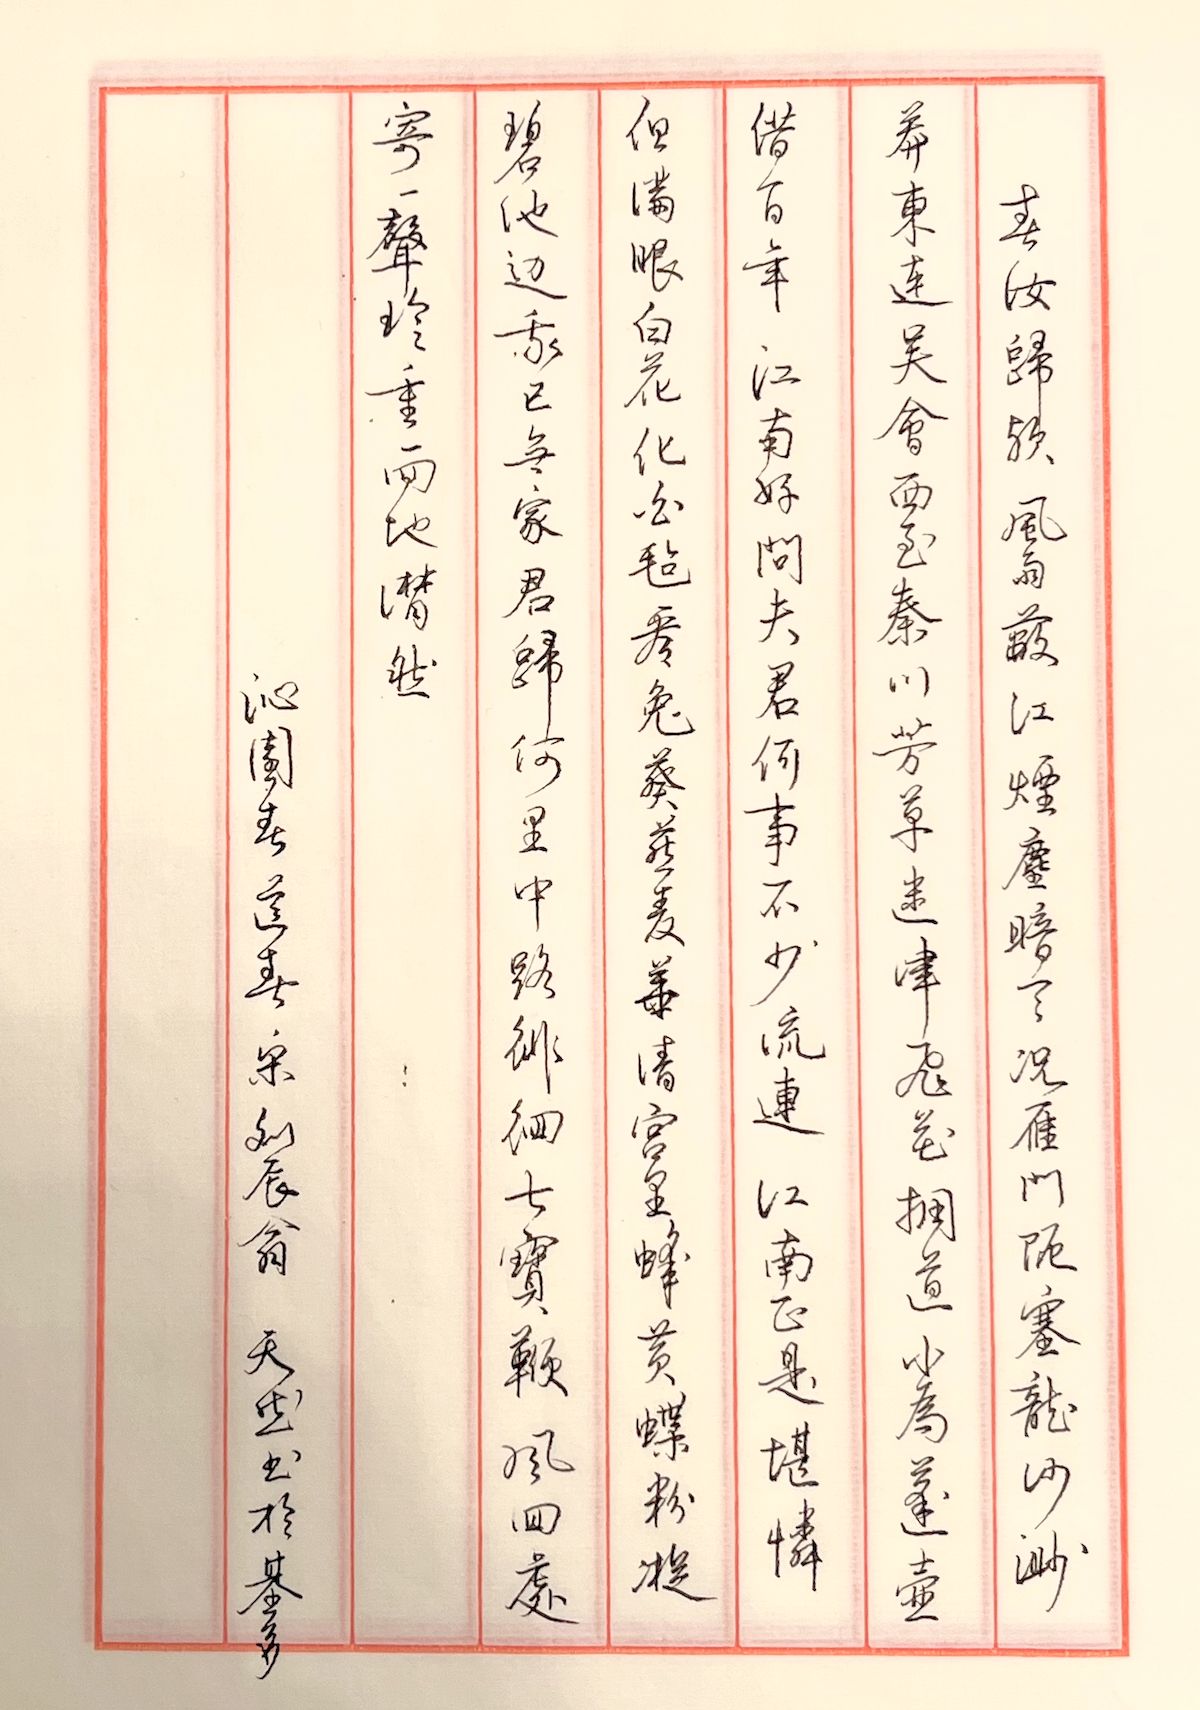 春汝歸歟風雨蔽江煙塵暗天況雁門阨塞龍沙渺
莽東連吴會西至秦川芳草迷津飛花擁道小為蓬壺
借百年江南好問夫君何事不少流連江南正是堪憐
但滿眼白花化白氊看兔葵燕麦華清宮里蜂黄蝶粉凝
碧池边我已無家君歸何里中路徘徊七寶鞭风回處
寄一聲珍重两地潸然
沁園春送春宋劉辰翁 天然书於基多